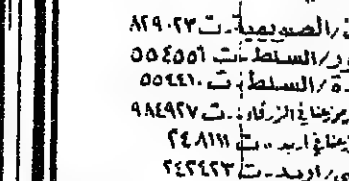 /الصويفية ـ ت ٨٢٩٠٢٣
ور/السلط ـ ت ٥٥٤٥٥٦
دة/السلط ـ ت ٥٥٤٤١٠
الزرقاء ـ ت ٩٨٤٩٢٧
اربد ـ ت ٢٤٨١١١
/اربد ـ ت ٢٤٢٤٢٣